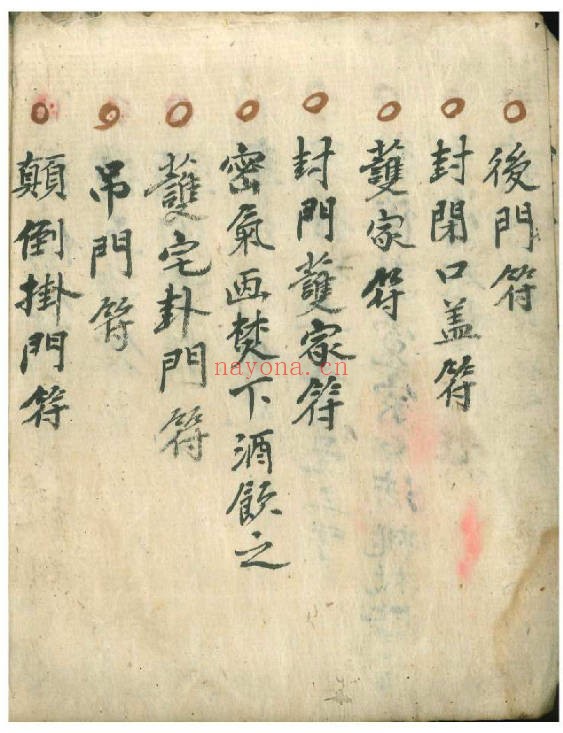 後門符
封閉口盖符
䕶家符
封門䕶家符
密氣画焚下酒飲之
䕶宅卦門符
吊門符
顛倒掛門符
nayona.cn